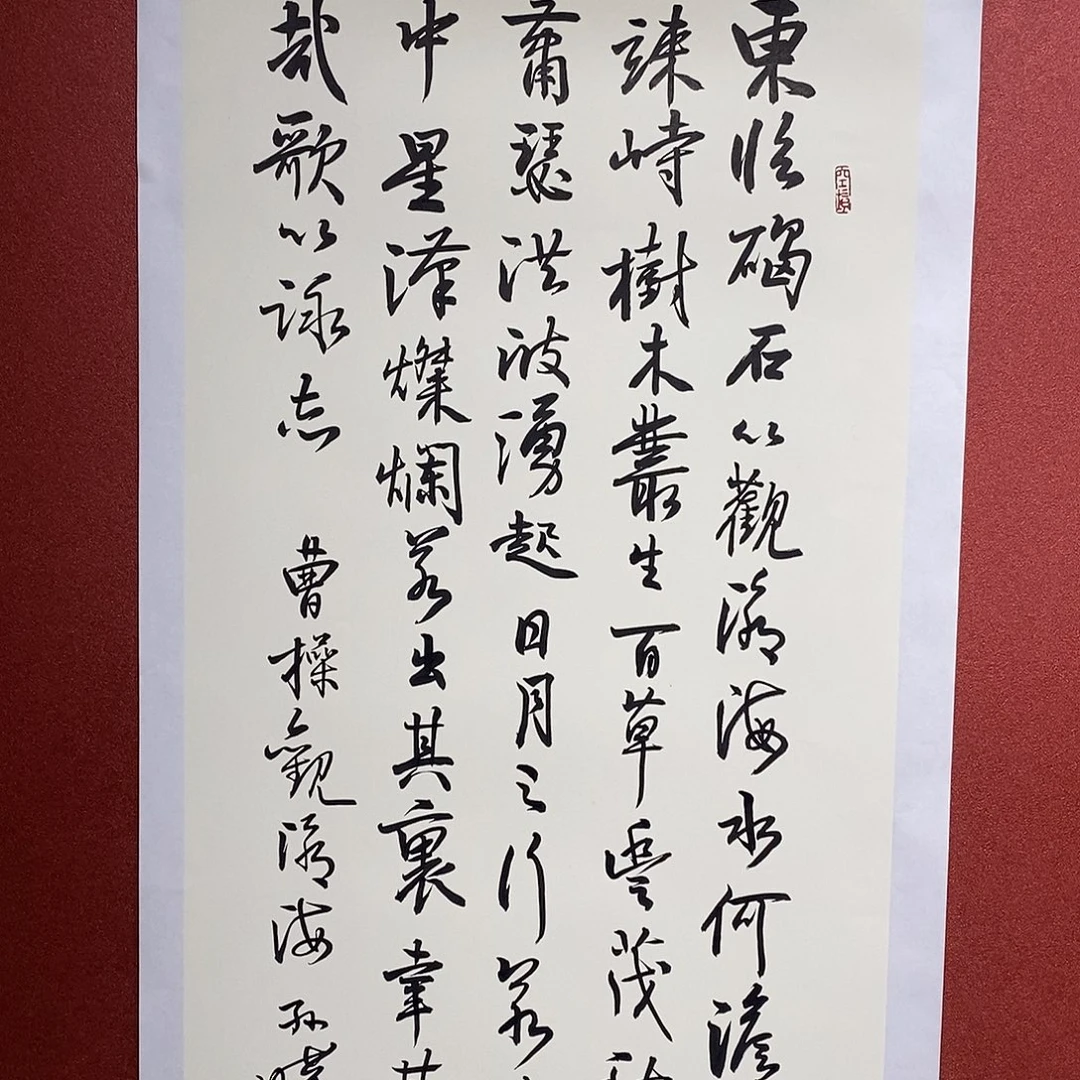 東临碣石以觀滄海水何澹
竦峙樹木叢生百草豊茂
蕭瑟洪波湧起日月之行若
中星漢燦爛若出其裏幸甚
哉歌以詠志
曹操觀滄海 孙